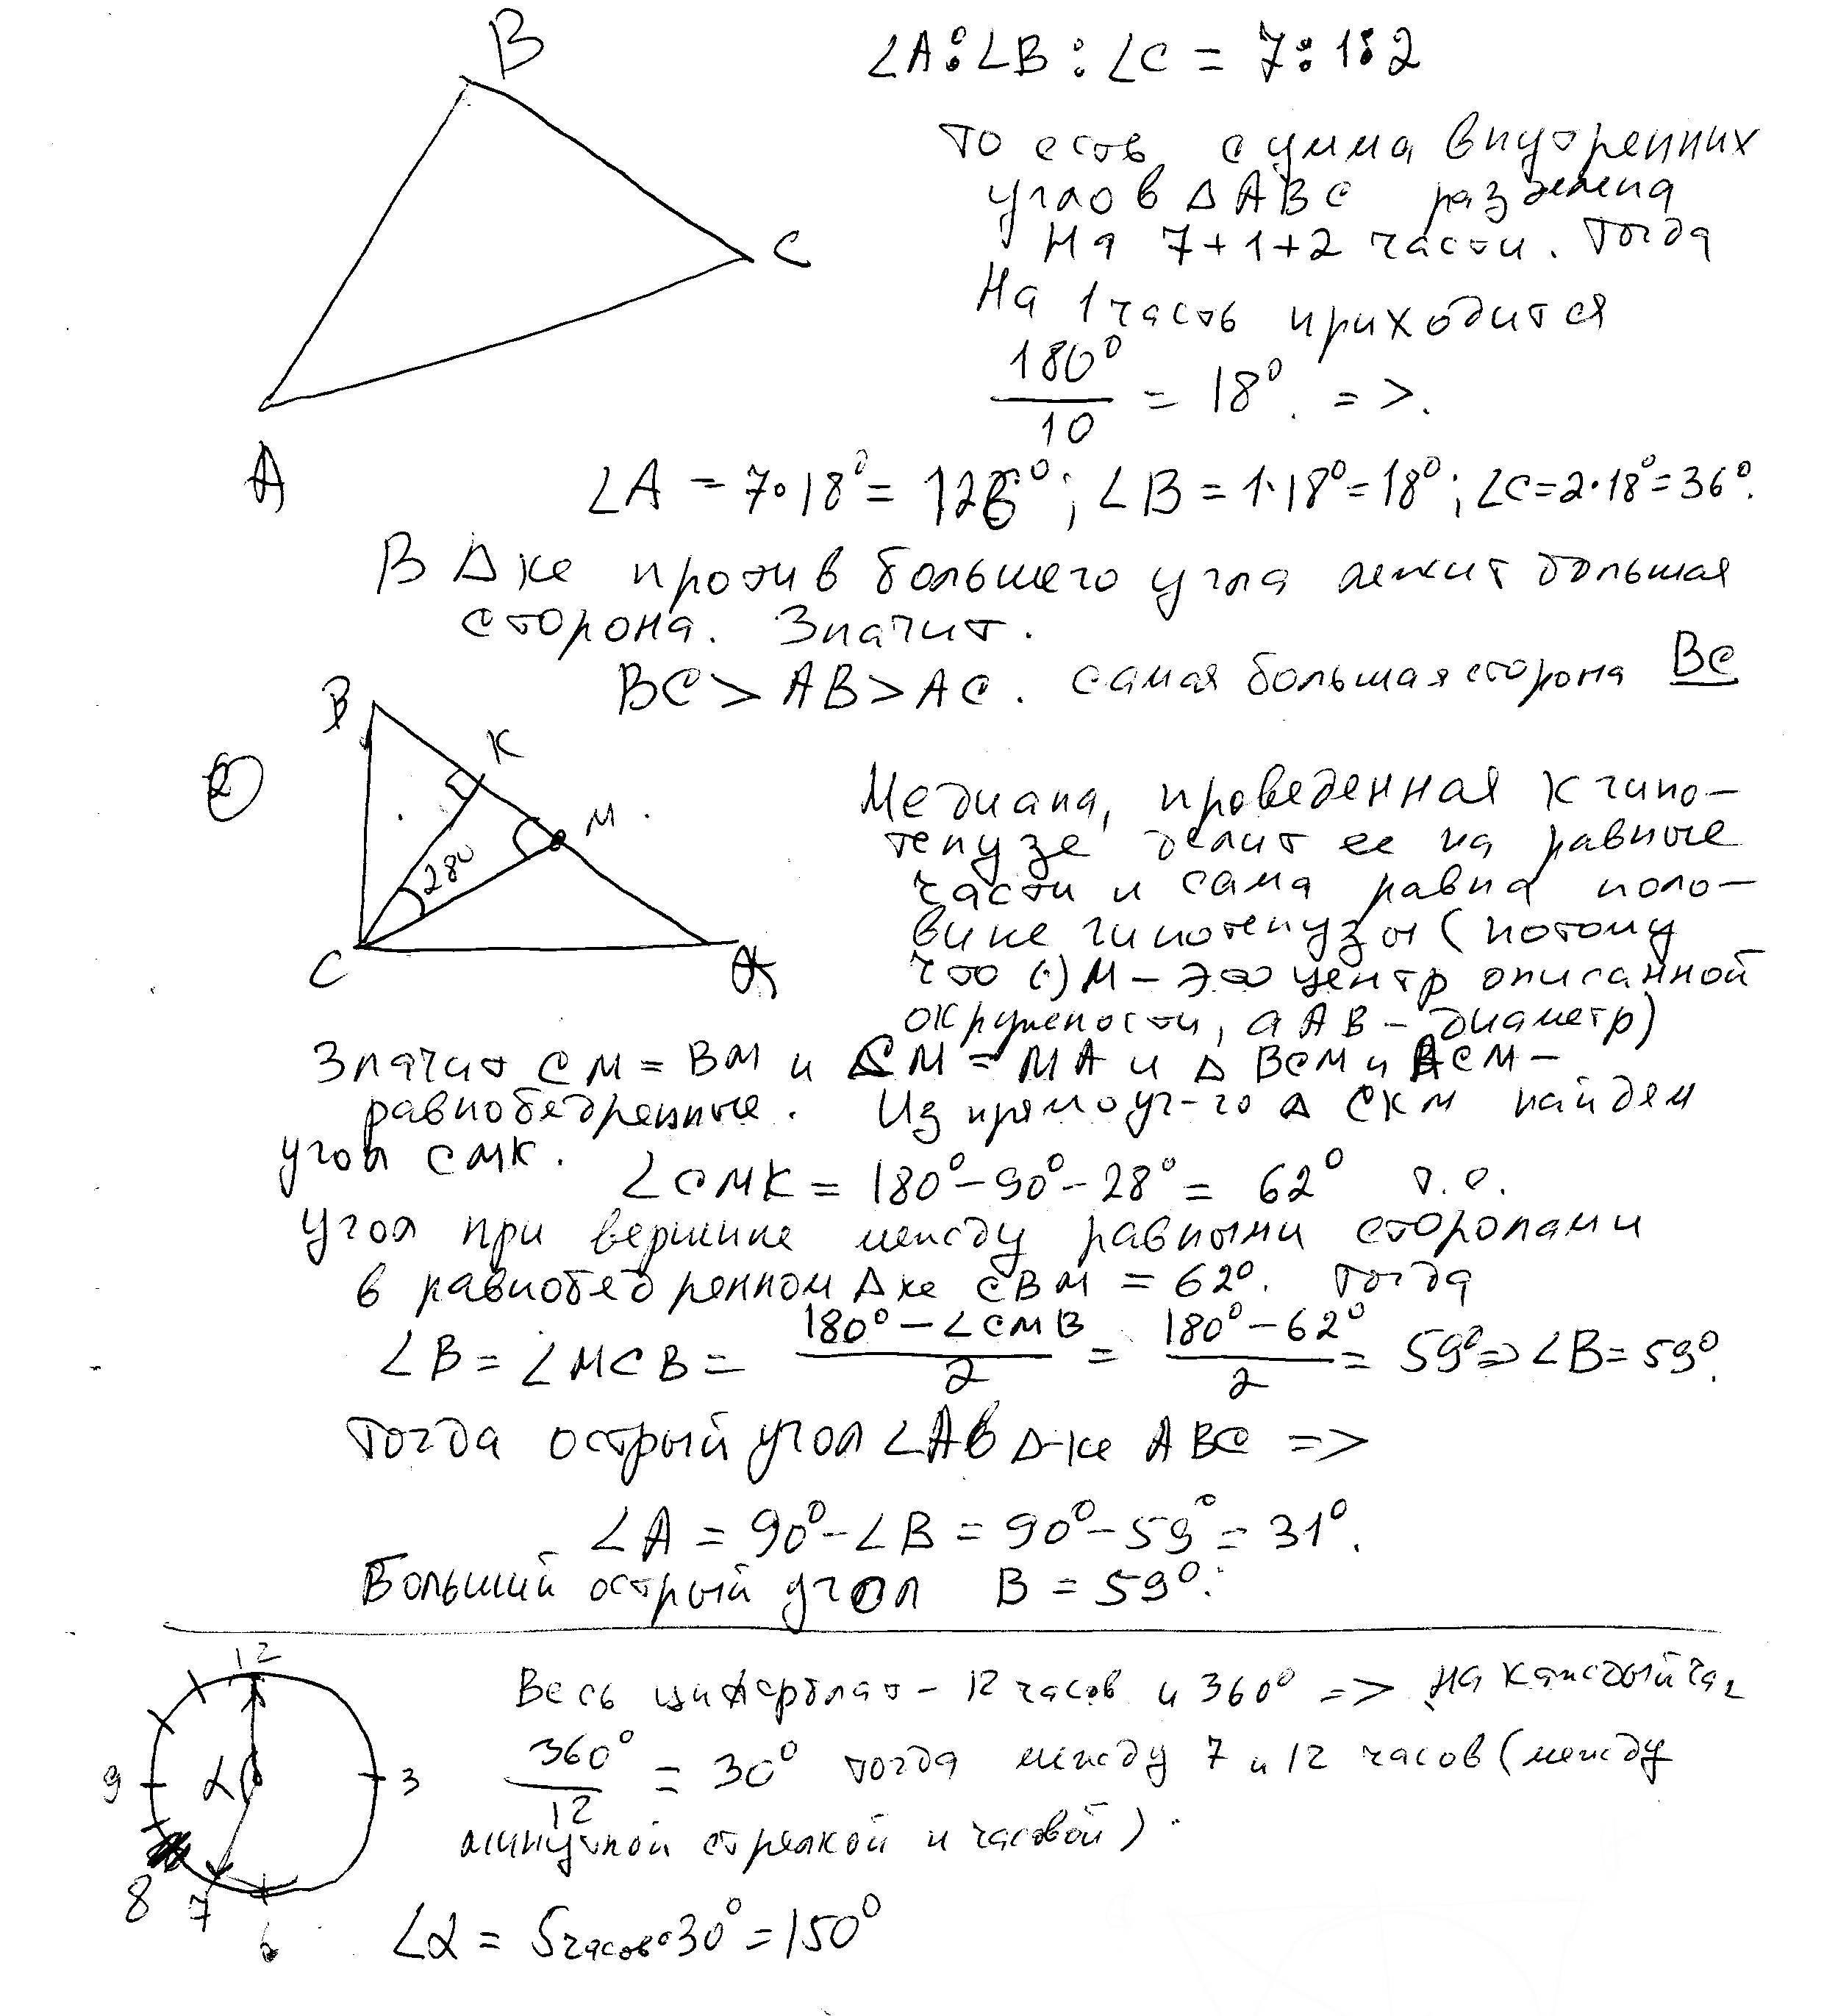 B
C
A
∠A:∠B:∠C = 7:1:2
то есть сумма внутренних
углов ΔABC разделена
на 7+1+2 части. Тогда
На 1 часть приходится
180°/10 = 18°. =>.
∠A = 7·18° = 126°; ∠B = 1·18° = 18°; ∠C = 2·18° = 36°.
В Δке против большего угла лежит большая
сторона. Значит.
BC > AB > AC. самая большая сторона BC
2
B
K
M
28°
C
A
Медиана, проведенная к гипо-
тенузе делит ее на равные
части и сама равна поло-
вине гипотенузы (потому
что (·) M – это центр описанной
окружности, а AB – диаметр)
Значит CM = BM и CM = MA и Δ BCM и ACM –
равнобедренные. Из прямоуг-го Δ CKM найдем
угол CMK.
∠CMK = 180° – 90° – 28° = 62° т.о.
угол при вершине между равными сторонами
в равнобедренном Δке CBM = 62°. Тогда
∠B = ∠MCB = (180° – ∠CMB)/2 = (180° – 62°)/2 = 59° => ∠B = 59°.
Тогда острый угол ∠A в Δ-ке ABC =>
∠A = 90° – ∠B = 90° – 59° = 31°.
Больший острый угол B = 59°.
12
9
3
α
8
7
6
Весь циферблат – 12 часов и 360° => на каждый час
360°/12 = 30° тогда между 7 и 12 часов (между
минутной стрелкой и часовой)
∠α = 5 часов · 30° = 150°